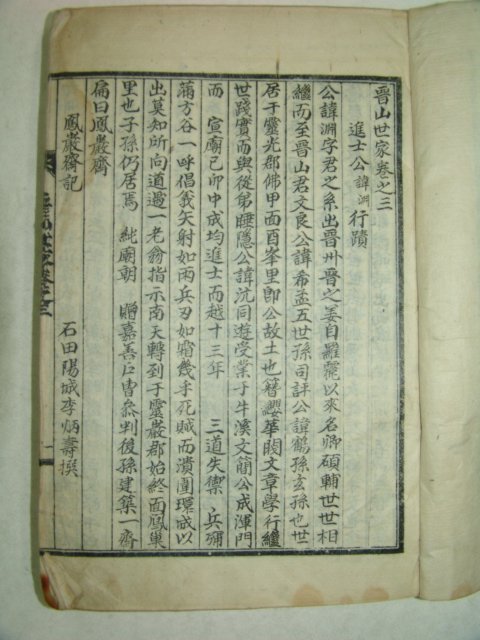 晉山世家卷之三
進士公諱淵行蹟
公諱淵字君之系出晋州晋之姜自羅麗以來名卿碩輔世世相
繼而至晋山君文良公諱希孟五世孫司評公諱鶴孫玄孫也世
居于靈光郡佛甲面酉峯里卽公故土也簪纓華閥文章學行繼
世踐實而與從弟睡隱公諱沆同遊受業于牛溪文簡公成渾門
而 宣廟己卯中成均進士而越十三年 三道失禦 兵彌
滿方谷一呼倡義矢射如雨兵刃如霜幾乎死賊而潰圍環或以
出莫知所向道過一老翁指示南天轉到于靈巖郡始終面鳳巢
里也子孫仍居焉 純廟朝 贈嘉善戶曹叅判後孫建築一齋
扁曰鳳巖齋
鳳巖齋記
石田陽城李炳壽撰
晉山世家卷之三
一